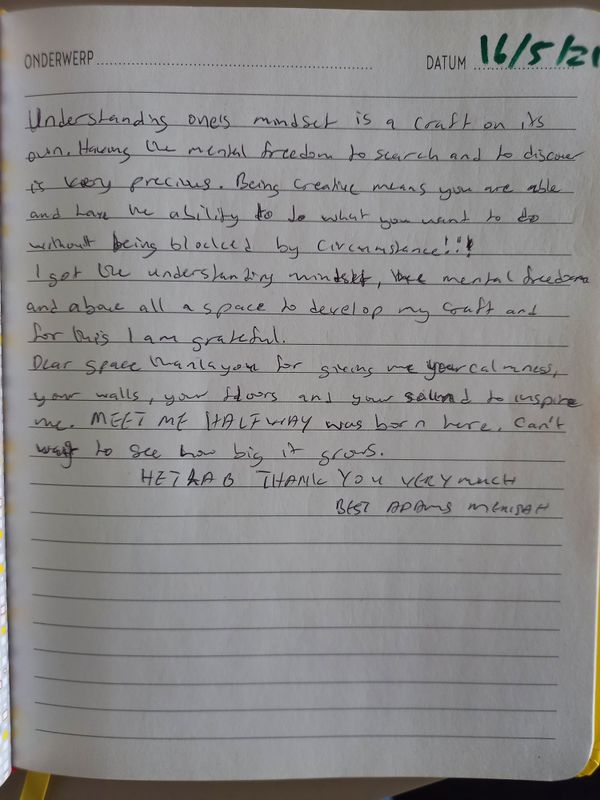 ONDERWERP
DATUM 16/5/21
Understanding one's mindset is a craft on its
own. Having the mental freedom to search and to discover
is very precious. Being creative means you are able
and have the ability to do what you want to do
without being blocked by circumstance!!!
I got the understanding mindset, the mental freedom
and above all a space to develop my craft and
for this I am grateful.
Dear space thank you for giving me your calmness,
your walls, your floors and your sound to inspire
me. MEET ME HALFWAY was born here. Can't
wait to see how big it grows.
HET LAB THANK YOU VERY MUCH
BEST ADAMS MENSAH